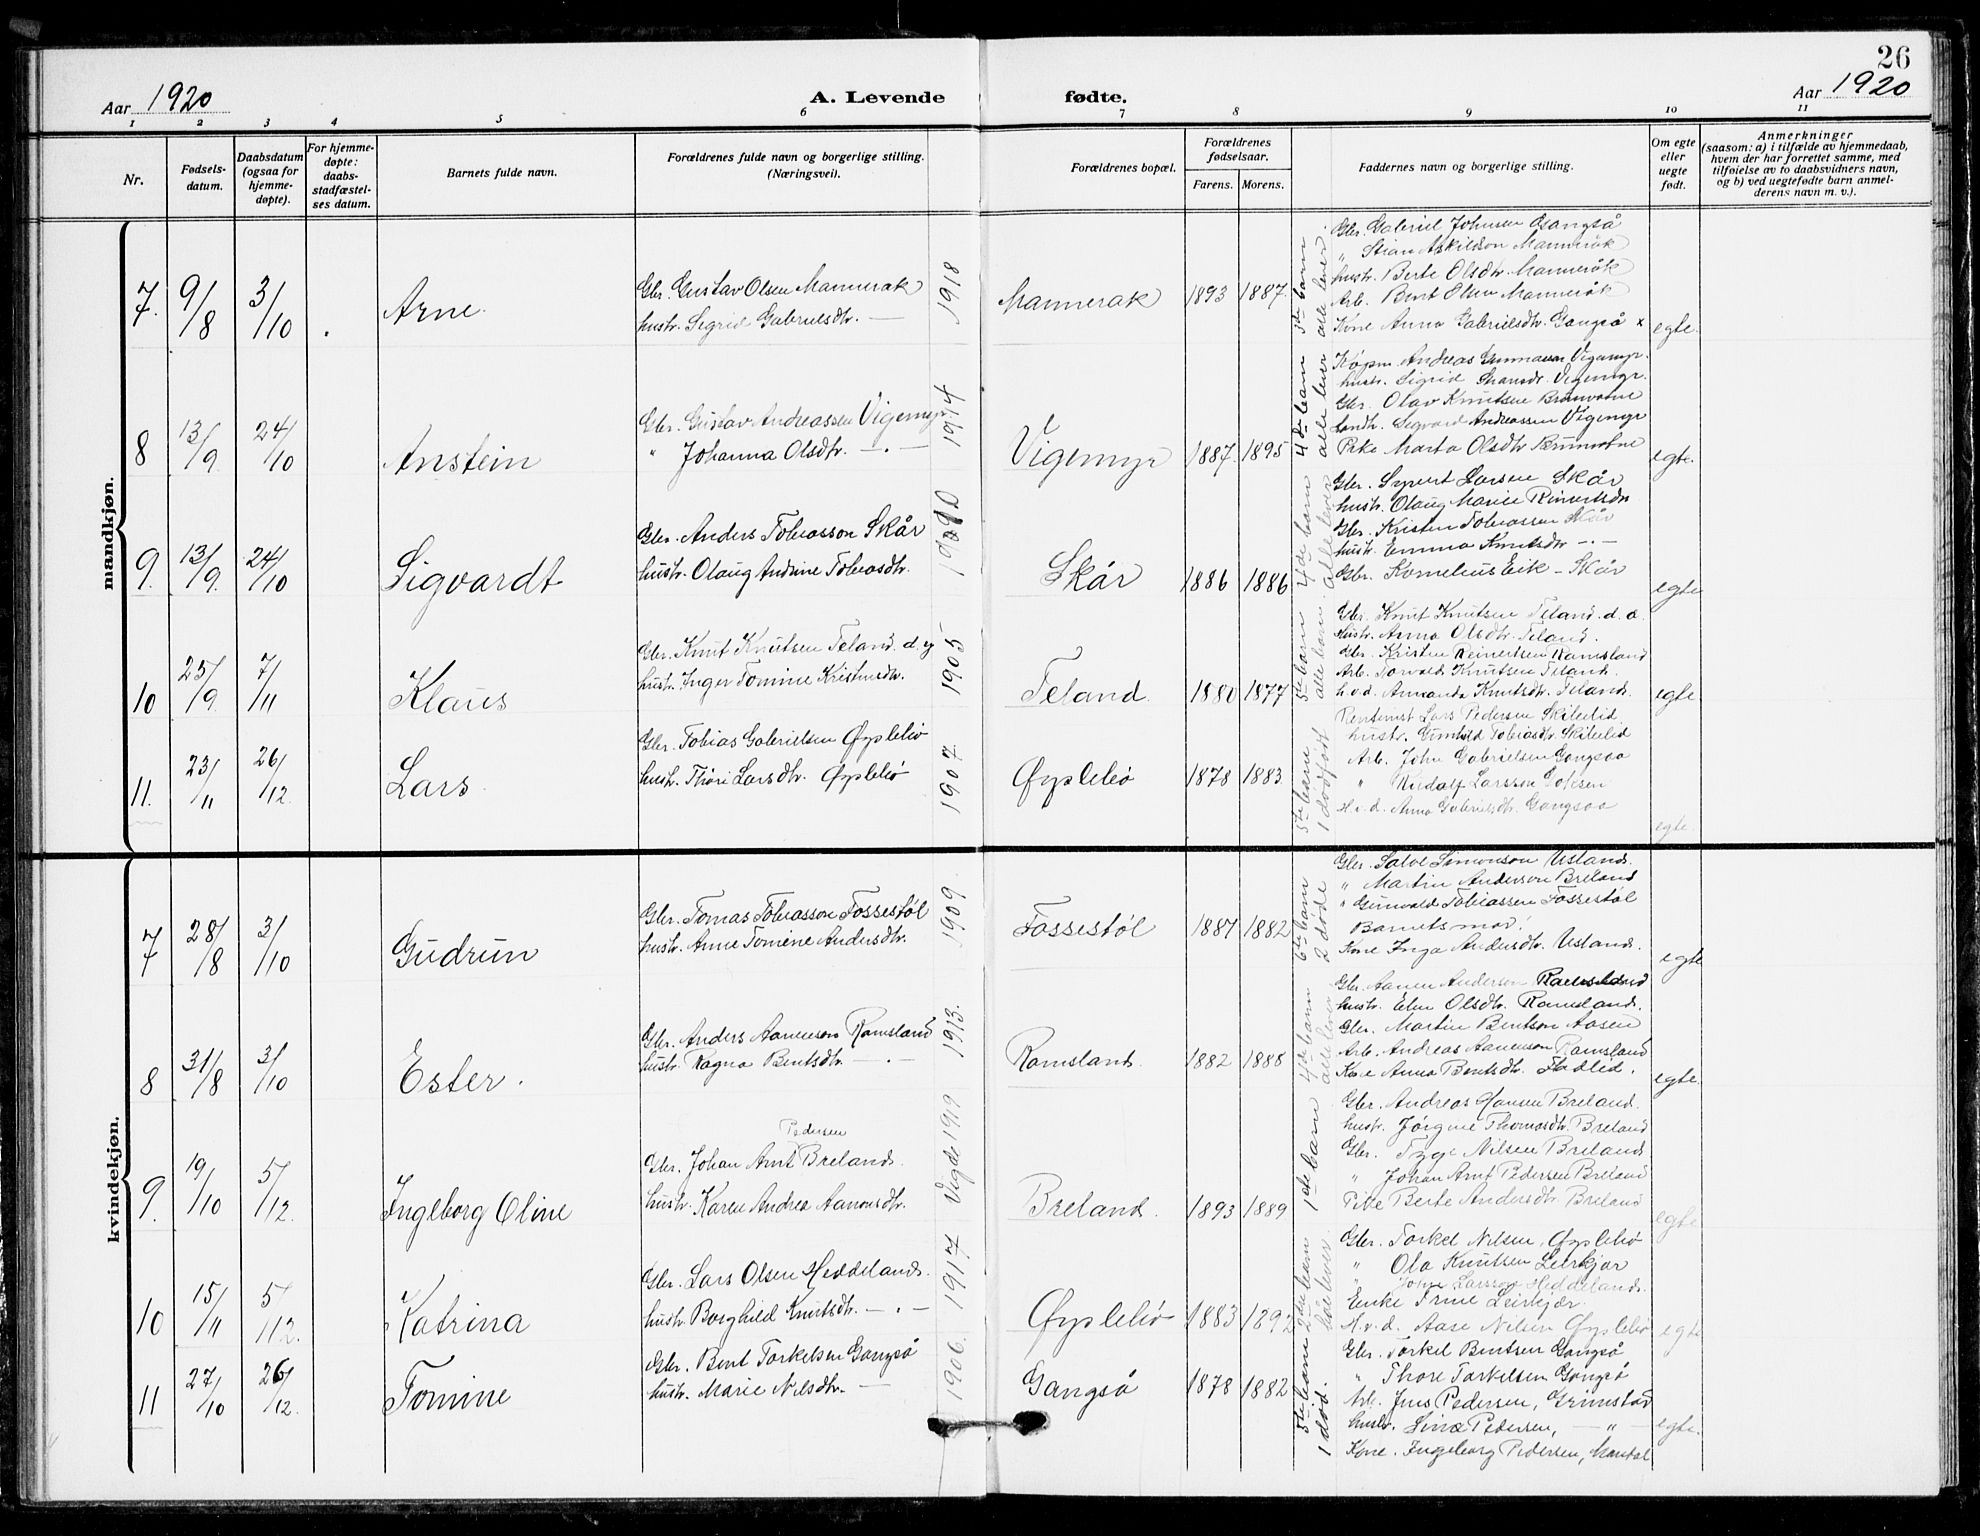 26
Aar 1920
A. Levende
fødte.
Aar 1920
1 2 3 4 5 6 7 8 9 10 11
Nr.
Fødsels-
datum.
Daabsdatum
(ogsaa for
hjemme-
døpte).
For hjemme-
døpte:
daabs-
stadfæstel-
ses datum.
Barnets fulde navn.
Forældrenes fulde navn og borgerlige stilling.
(Næringsvei).
Forældrenes bopæl.
Forældrenes
fødselsaar.
Farens. Morens.
Faddernes navn og borgerlige stilling.
Om egte
eller
uegte
født.
Anmerkninger
(saasom: a) i tilfælde av hjemmedaab,
hvem der har forrettet samme, med
tilføielse av to daabsvidners navn,
og b) ved uegtefødte barn anmel-
derens navn m. v.).
mandkjøn.
7. 9/8 3/10 Arne
Gbr. Gustav Olsen Mannerak
hustr. Sigrid Gabrielsdtr. —
1918
Mannerak 1893 1887.
alle lever
Gbr. Gabriel Johnsen Gangså
" Stian Askildsen Manneråk
hustr. Berte Olsdtr. Manneråk
Arb. Bent Olsen Manneråk
Kone Anna Gabrielsdtr. Gangså x
egte.
8 13/9. 24/10 Anstein
Gbr. Gustav Andreassen Vigemyr
" Johanna Olsdtr. —.—
1914
Vigemyr 1887. 1895
4de barn
alle lever
Køpm. Andreas Gunnarsen Vigemyr.
hustr. Sigrid Hansdr. Vigemyr.
Gbr. Olav Knutsen
Landh. Sigvard Andreassen Vigemyr
Pike Marta Olsdtr
egte.
9. 13/9. 24/10 Sigvardt
Gbr. Anders Tobiasson Skår
hustr. Olaug Andrine Tobiasdtr.
Skår 1886 1886
4de barn
alle lever
Gbr. Sypert Larsen Skår
hustr. Olaug Marie Reinertsdtr
Gbr. Kristen Tobiassen Skår
hustr. Emma Knutsdtr -.-
Gbr. Kornelius Eik - Skår
egte
10 25/9. 7/11 Klaus
Gbr. Knut Knutsen Teland. d. y
hustr. Inger Tomine Kristensdtr.
1905
Teland. 1880 1877
5te barn
alle
Gbr. Knut Knutsen Teland. d. a.
hustr. Anna Olsdtr. Teland.
Gbr. Kristen Reinertsen Ramsland
Arb. Torvald Knutsen Teland.
h.v.d. Amanda Knutsdtr. Teland.
egte
11. 23/11 26/12. Lars
Gbr. Tobias Gabrielsen Øyslebø
hustr. Thore Larsdtr. Øyslebø
1907.
Øyslebø 1878 1883
5te barn
1 dødfødt
Rentenist Lars Pedersen Skileslid
hustr. Gunhild Tobiasdtr. Skileslid
Arb. John Gabrielsen Gangsaa
" Larsson
H.v.d. Anna Gabrielsdtr. Gangsaa
egte.
kvindekjøn.
7 28/8 3/10 Gudrun
Gbr. Tomas Tobiasson Fossestøl
hustr. Anne Tomine Andersdtr.
1909
Fossestøl 1887 1882
6te barn
2 døde
Gbr. Salve Simonson Usland.
" Martin Anderson Breland
" Gunvald Tobiassen Fossestøl
Barnets mor.
Kone Inga Andersdtr. Usland.
egte
8 31/8 3/10 Ester.
Gbr. Anders Aanenson Ramsland
hustr. Ragna Bentsdtr. —.—
1913.
Ramsland. 1882 1888
4de barn
alle lever
Gbr. Aanen Anderson Ramsland
hustr. Elen Olsdtr. Ramsland.
Gbr. Martin Bentson Aasen
Arb. Andreas Aanenson Ramsland
Kone Anna Bentsdtr.
egte.
9. 19/10 5/12. Ingeborg Oline
Pedersen
Gbr. Johan Arnt Breland.
hustr. Karen Andrea Aanensdtr.
1919
Breland. 1893 1889
1ste barn
Gbr. Andreas Hansen Breland.
hustr. Jørgine Thomasdtr. Breland
Gbr. Tyge Nilsen Breland
" Johan Arnt Pedersen Breland
Pike Berte Andersdtr Breland
egte
10 15/11 5/12. Katrina
Gbr. Lars Olsen Heddeland.
hustr. Borghild Knutsdtr. —.—
1917
Øyslebø 1883 1892
2det barn
lever.
Gbr. Torkel Nilsen, Øyslebø
" Ola Knutsen Leirkjær
" Larsson Heddeland.
Enke Trine Leirkjær.
H.v.d. Aase Nilsen Øyslebø
egte
11 27/10 26/12. Tomine
Gbr. Bent Torkelsen Gangsø
hustr. Marie Nilsdtr. —
1906.
Gangsø 1878 1882
5te barn
1 død.
Gbr. Torkel Bentsen Gangsø
" Thore Torkelsen Gangsø
Arb. Jens Pedersen, Grimstad
hustr. Sina Pedersen, — " —
Kone. Ingeborg Pedersen, Mandal
egte.